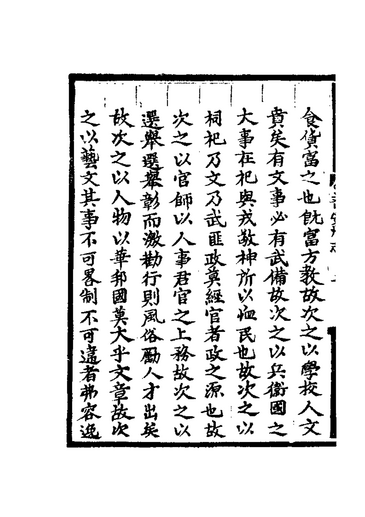 食貨富之也旣富方敎故次之以學校人文
賁矣有文事必有武備故次之以兵衛國之
大事在祀與戎敬神所以恤民也故次之以
祠祀乃文乃武匪政莫經官者政之源也故
次之以官師以人事君官之上務故次之以
選舉選舉彰而激勸行則風俗勵人才出矣
故次之以人物以華邦國莫大乎文章故次
之以藝文其事不可畧制不可違者弗容逸